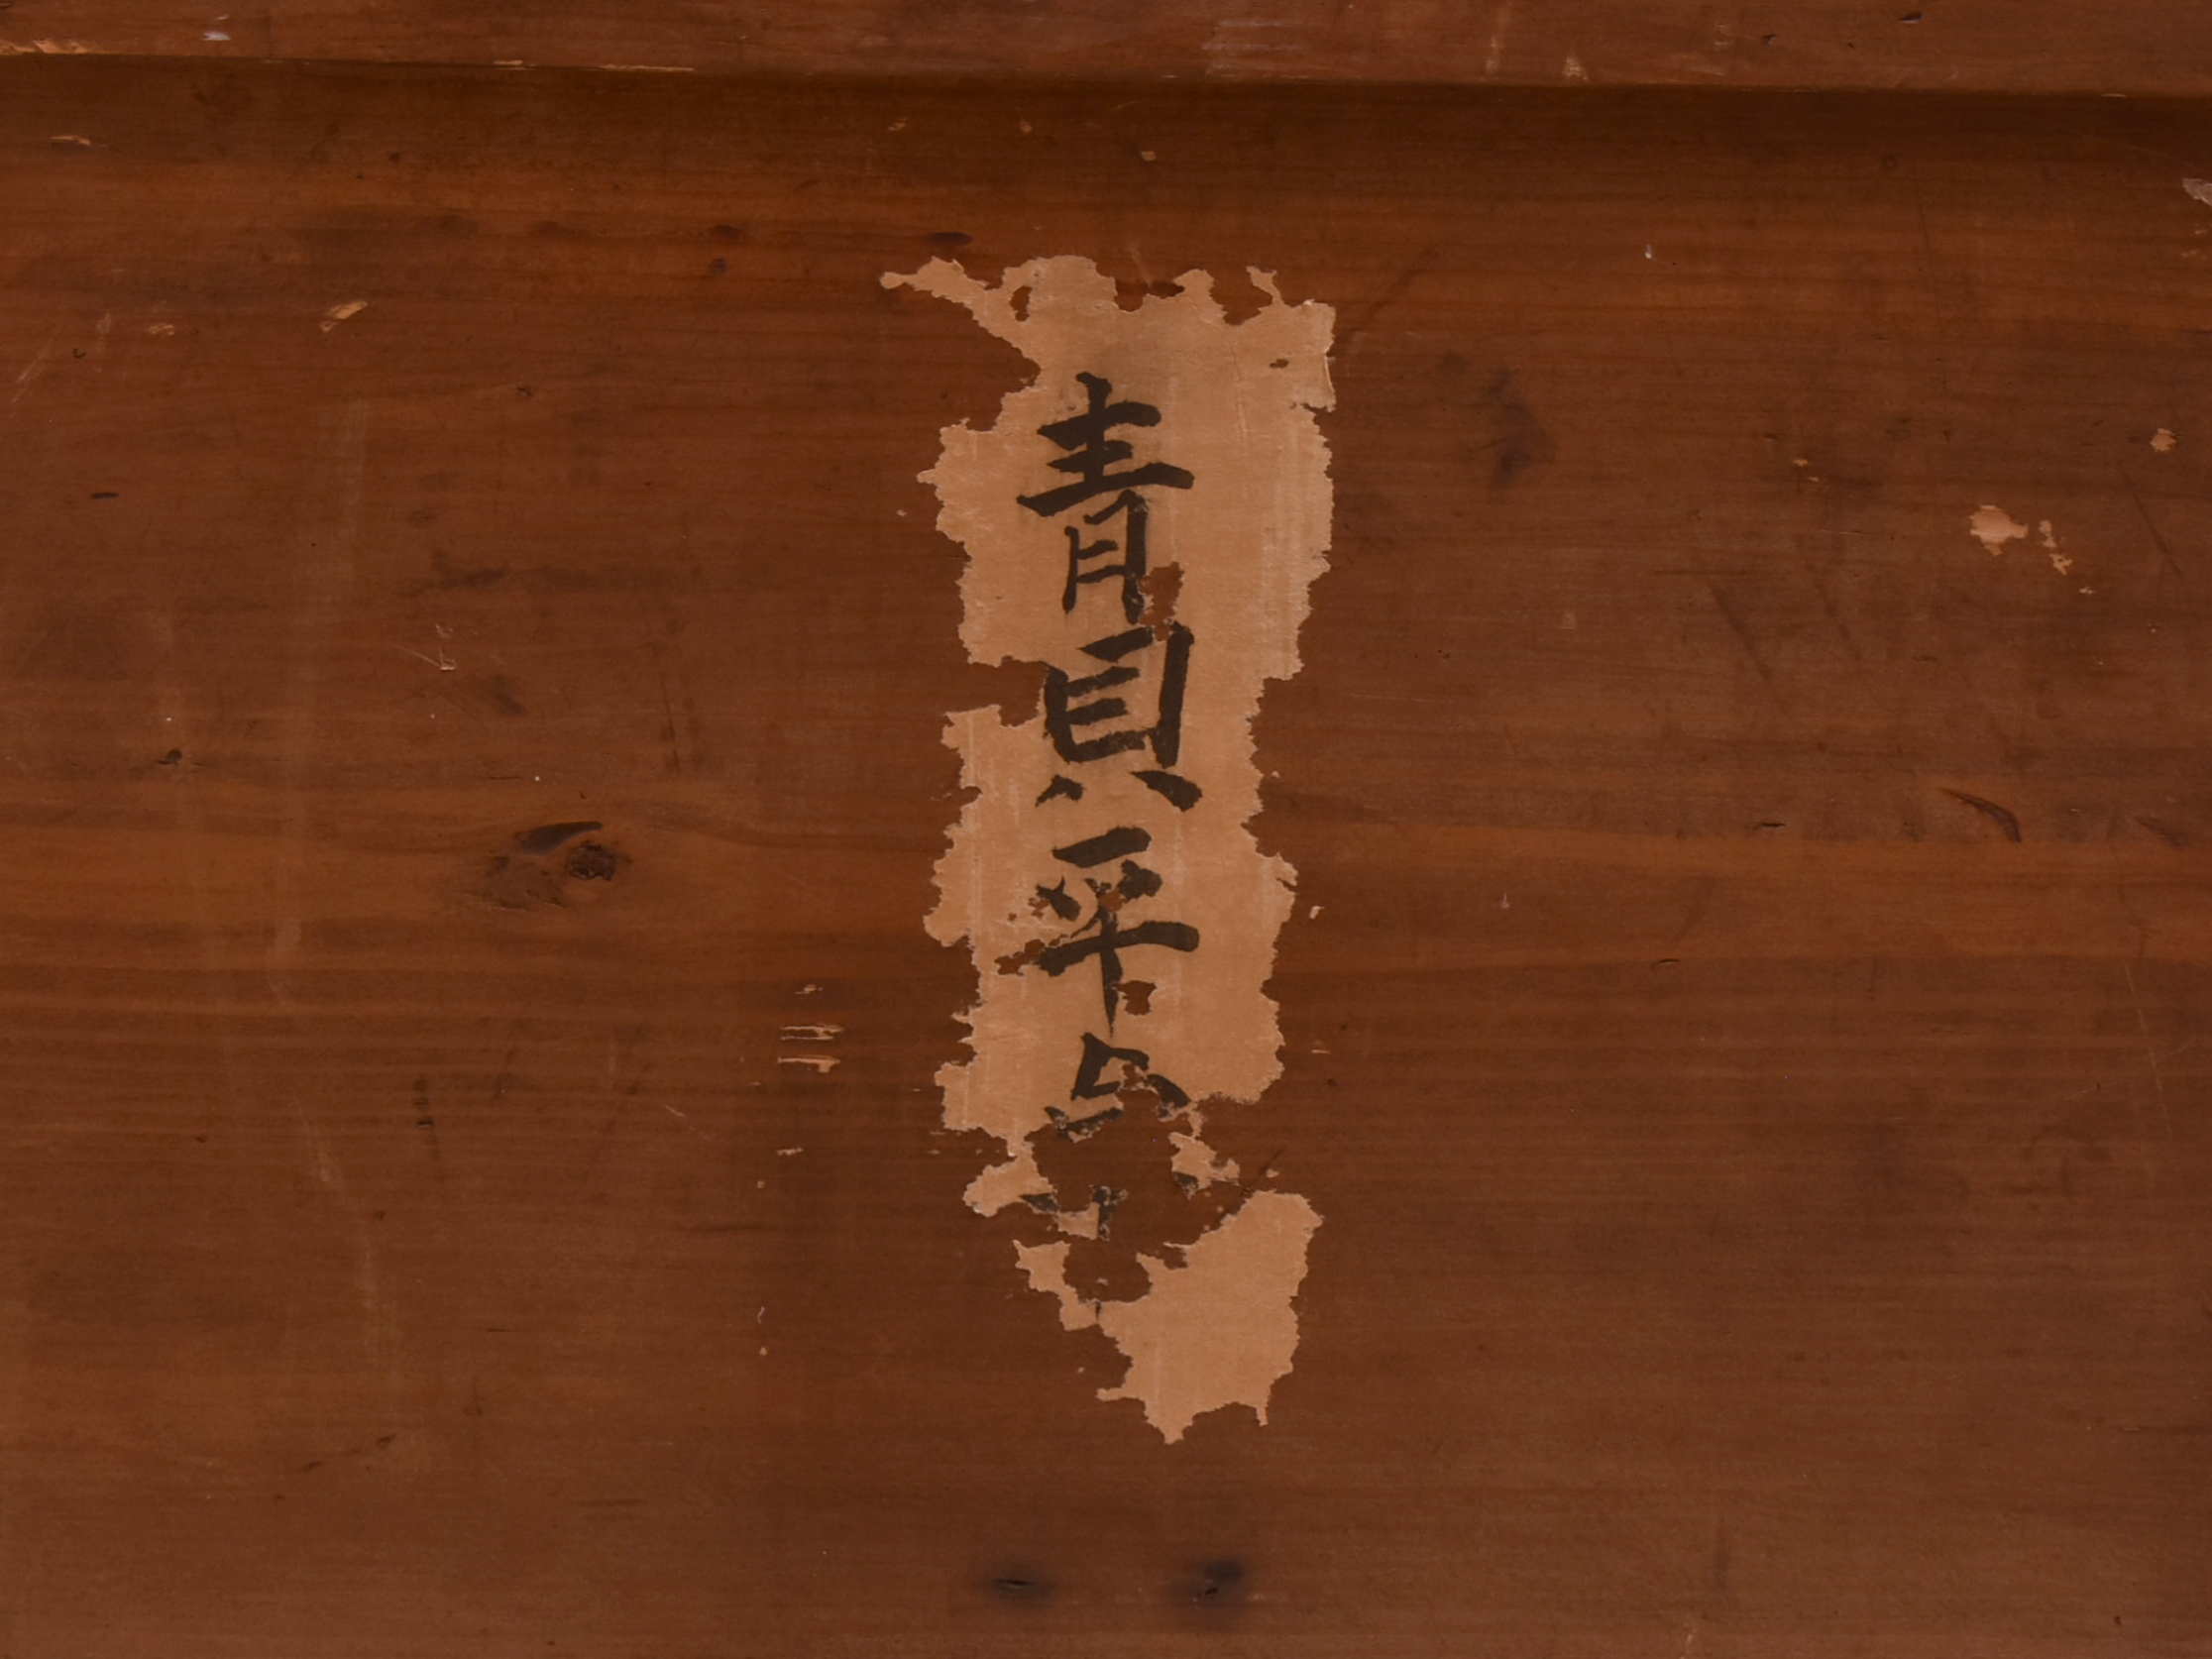 青貝平卓